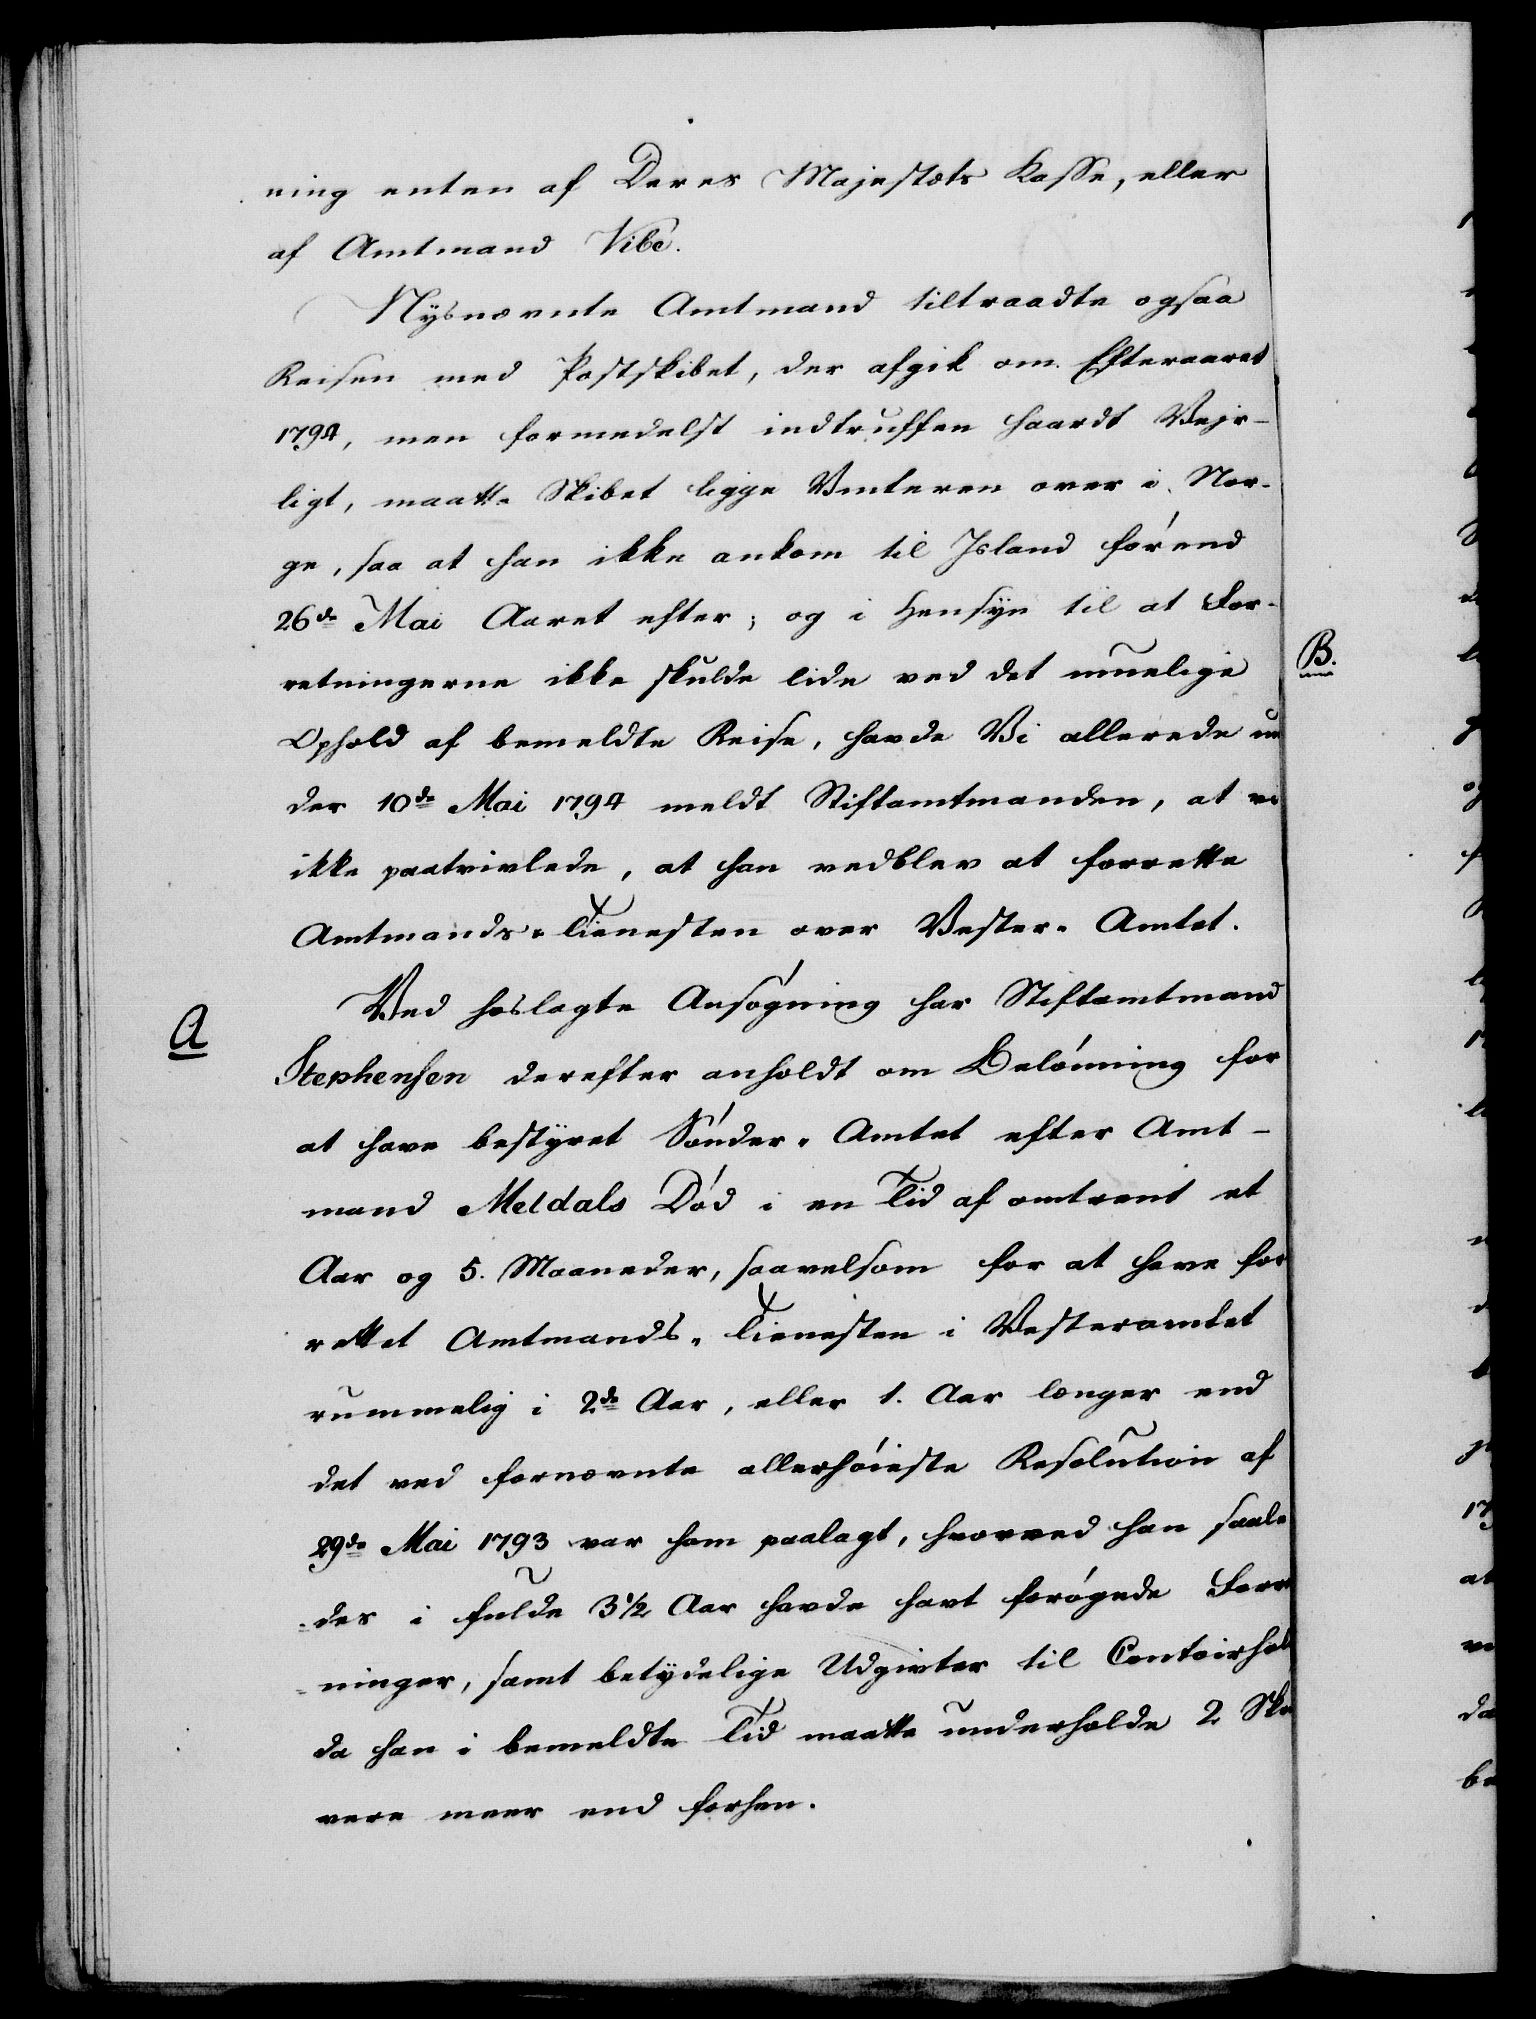 ning enten af Deres Majestæts Kasse, eller
af Amtmand Vibe.
Nysnævnte Amtmand tiltraadte ogsaa
Reisen med Postskibet, der afgik om Efteraaret
1794, men formedelst indtruffen haardt Vejr-
ligt, maatte Skibet ligge Vinteren over i Nor-
ge, saa at han ikke ankom til Island førend
26de Mai Aaret efter; og i Hensyn til at For-
retningerne ikke skulde lide ved det muelige
Ophold af bemeldte Reise, havde Vi allerede un
der 10de Mai 1794 meldt Stiftamtmanden, at vi
ikke paatvivlede, at han vedblev at forrette
Amtmands-Tienesten over Vester-Amtet.
A
Ved hoslagte Ansøgning har Stiftamtmand
Stephensen derefter anholdt om Belønning for
at have bestyret Sønder-Amtet efter Amt-
mand Meldals Død i en Tid af omtrent et
Aar og 5. Maaneder, saavelsom for at have for
rettet Amtmands-Tienesten i Vesteramtet
rummelig i 2de Aar, eller 1. Aar længer end
det ved fornævnte allerhøieste Resolution af
29de Mai 1793 var ham paalagt, hvorved han saale
des i fulde 3 1/2 Aar havde havt forøgede Forr
ninger, samt betydelige Udgivter til Contoirhol
da han i bemeldte Tid maatte underholde 2 Skri
vere meer end forhen.
B.